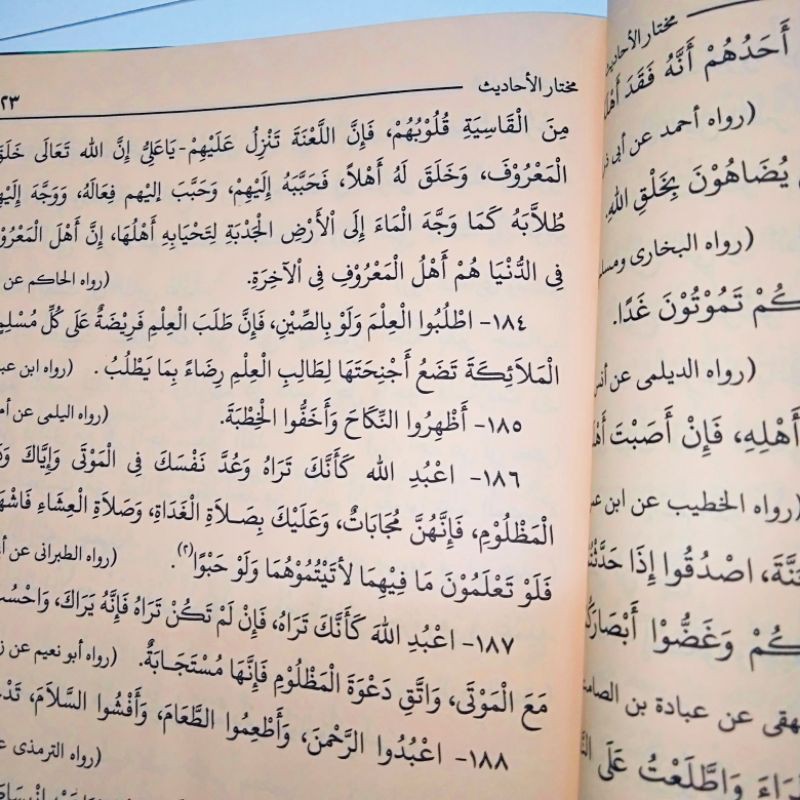 مختار الأحاديث
٢٣
مِنَ الْقَاسِيَةِ قُلُوبُهُمْ، فَإِنَّ اللَّعْنَةَ تَنْزِلُ عَلَيْهِمْ - يَاعَلِىُّ إِنَّ الله تَعَالَى
الْمَعْرُوْفَ، وَخَلَقَ لَهُ أَهْلاً، فَحَبَّبَهُ إِلَيْهِمْ، وَحَبَّبَ إليهم فِعَالَهُ، وَوَجَّهَ
طُلاَّبَهُ كَمَا وَجَّهَ الْمَاءَ إِلَى الْأَرْضِ الْجَدْبَةِ لِتَحْيَابِهِ أَهْلُهَا، إِنَّ أَهْلَ
فِى الدُّنْيَا هُمْ أَهْلُ الْمَعْرُوْفِ فِى الْآخِرَةِ. (رواه الحاكم عن
١٨٤- اطْلُبُوا الْعِلْمَ وَلَوْ بِالصِّيْنِ، فَإِنَّ طَلَبَ الْعِلْمِ فَرِيْضَةٌ عَلَى كُلِّ
الْمَلاَئِكَةَ تَضَعُ أَجْنِحَتَهَا لِطَالِبِ الْعِلْمِ رِضَاءً بِمَا يَطْلُبُ. (رواه ابن
١٨٥- أَظْهِرُوا النِّكَاحَ وَأَخَفُّوا الْخِطْبَةَ. (رواه اليلمى عن
١٨٦- اعْبُدِ الله كَأَنَّكَ تَرَاهُ وَعُدَّ نَفْسَكَ فِى الْمَوْتَى وَإِيَّاكَ
الْمَظْلُوْمِ، فَإِنَّهُنَّ مُجَابَاتٌ، وَعَلَيْكَ بِصَلاَةِ الْغَدَاةِ، وَصَلاَةِ الْعِشَاءِ
فَلَوْ تَعْلَمُوْنَ مَا فِيْهِمَا لأَتَيْتُمُوْهُمَا وَلَوْ حَبْوًا(٢). (رواه الطبرانى عن
١٨٧- اعْبُدِ اللهَ كَأَنَّكَ تَرَاهُ، فَإِنْ لَمْ تَكُنْ تَرَاهُ فَإِنَّهُ يَرَاكَ،
مَعَ الْمَوْتَى، وَاتَّقِ دَعْوَةَ الْمَظْلُوْمِ فَإِنَّهَا مُسْتَجَابَةٌ. (رواه أبو نعيم عن
١٨٨- اعْبُدُوا الرَّحْمنَ، وَأَطْعِمُوا الطَّعَامَ، وَأَفْشُوا السَّلاَمَ،
(رواه الترمذى
مختار الأحاديث
أَحَدُهُمْ أَنَّهُ فَقَدَ
(رواه أحمد عن أبى
يُضَاهُوْنَ بِخَلْقِ اللهِ.
(رواه البخارى
تَمُوْتُوْنَ غَدًا.
(رواه الديلمى عن
أَهْلِهِ، فَإِنْ أَصَبْتَ
(رواه الخطيب عن ابن
اصْدُقُوا إِذَا
وَغَضُّوْا
عن عبادة بن
وَاطَّلَعْتُ عَلَى